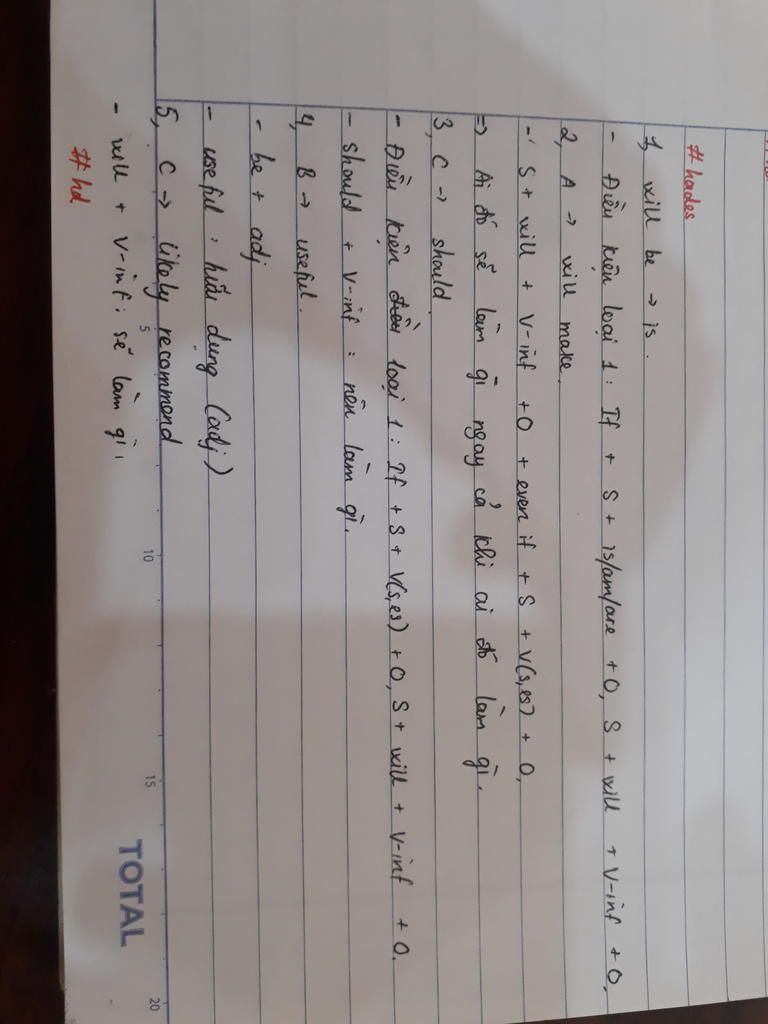 # hades
1, will be → is.
- Điều kiện loại 1: If + S + is/am/are + O, S + will + V-inf + O,
2, A → will make.
-' S + will + V-inf + O + even if + S + V(s,es) + O,
=> Ai đó sẽ làm gì ngay cả khi ai đó làm gì.
3, C → should.
- Điều kiện loại 1: If + S + V(s,es) + O, S + will + V-inf + O.
- Should + V-inf: nên làm gì.
4, B → useful.
- be + adj
- useful: hữu dụng (adj)
5, C → likely recommend
- will + V-inf: sẽ làm gì.
# hd
5 10 15 20
TOTAL